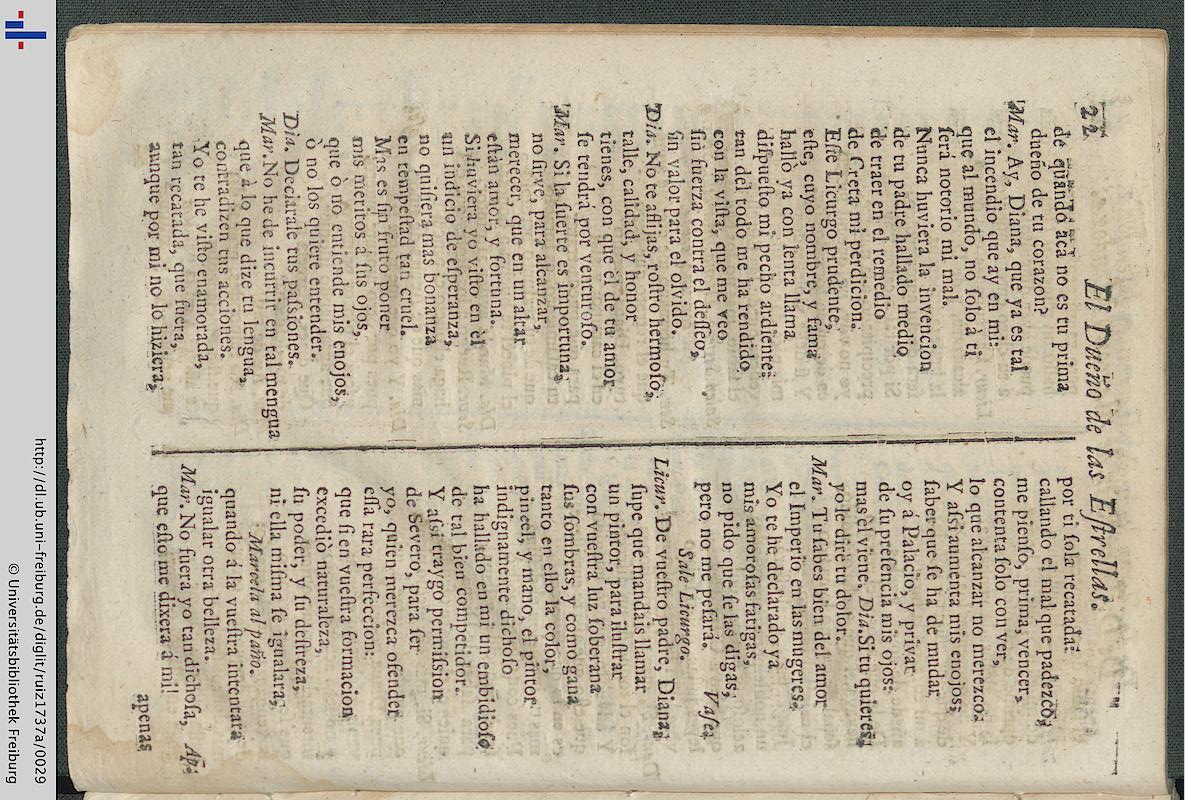 22
El Dueño de las Estrellas.
de quándo acá no es tu prima
dueño de tu corazon?
Mar. Ay, Diana, que ya es tal
el incendio que ay en mi:
que al mundo, no solo à ti
será notorio mi mal.
Nunca huviera la invencion
de tu padre hallado medio
de traer en el remedio
de Creta mi perdicion.
Este Licurgo prudente,
este, cuyo nombre, y fama
hallò ya con lenta llama
dispuesto mi pecho ardiente:
tan del todo me ha rendido
con la vista, que me veo
sin fuerza contra el desseo,
sin valor para el olvido.
Dia. No te aflijas, rostro hermoso,
talle, calidad, y honor
tienes, con que èl de tu amor
se tendrá por venturoso.
Mar. Si la suerte es importuna,
no sirve, para alcanzar,
merecer, que en un altar
están amor, y fortuna.
Si huviera yo visto en èl
aun indicio de esperanza,
no quisiera mas bonanza
en tempestad tan cruel.
Mas es sin fruto poner
mis meritos á sus ojos,
que ò no entiende mis enojos,
ò no los quiere entender.
Dia. Decirále tus passiones.
Mar. No he de incurrir en tal mengua
que à lo que dize tu lengua,
contradizen tus acciones.
Yo te he visto enamorada,
tan recatada, que fuera,
aunque por mi no lo hiziera,
por ti sola recatada:
callando el mal que padezco,
me pienso, prima, vencer,
contenta solo con ver,
lo que alcanzar no merezco.
Y assi aumenta mis enojos,
saber que se ha de mudar
oy á Palacio, y privar
de su presencia mis ojos:
mas èl viene. Dia. Si tu quieres,
yo le dirè tu dolor.
Mar. Tu sabes bien del amor
el Imperio en las mugeres.
Yo te he declarado ya
mis amorosas fatigas,
no pido que se las digas;
pero no me pesará. Vase.
Sale Licurgo.
Licur. De vuestro padre, Diana,
supe que mandais llamar
un pintor, para ilustrar
con vuestra luz soberana
sus sombras, y como gana
tanto en ello la color,
pincel, y mano, el pintor
indignamente dichoso
ha hallado en mi un embidioso
de tal bien competidor.
Y assi traygo permission
de Severo, para ser
yo, quien merezca ofender
essa rara perfeccion:
que si en vuestra formacion
excediò naturaleza,
su poder, y su destreza,
ni ella misma se igualara,
Marcela al paño.
quando á la vuestra intentara
igualar otra belleza.
Mar. No fuera yo tan dichosa, Ap.
que esto me dixera á mi!
apenas
http://dl.ub.uni-freiburg.de/diglit/ruiz1737a/0029
© Universitätsbibliothek Freiburg